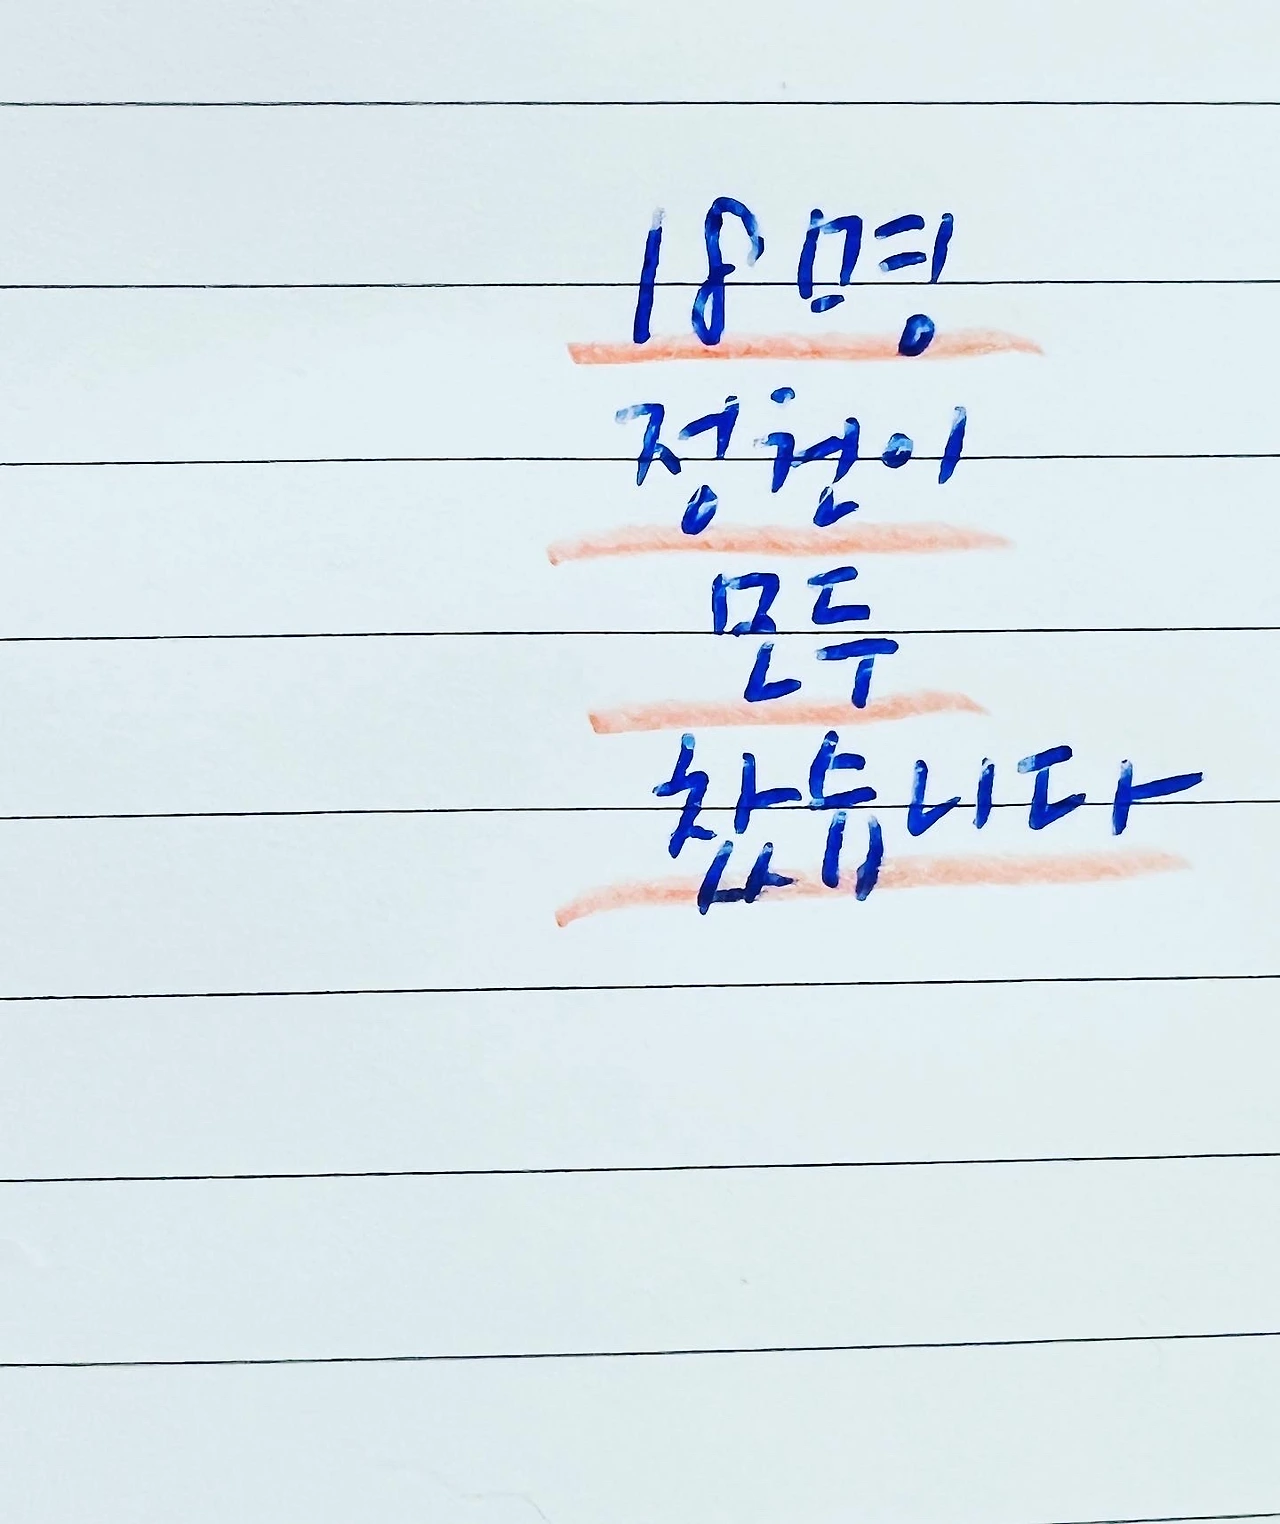 18명
정원이
모두
찼습니다